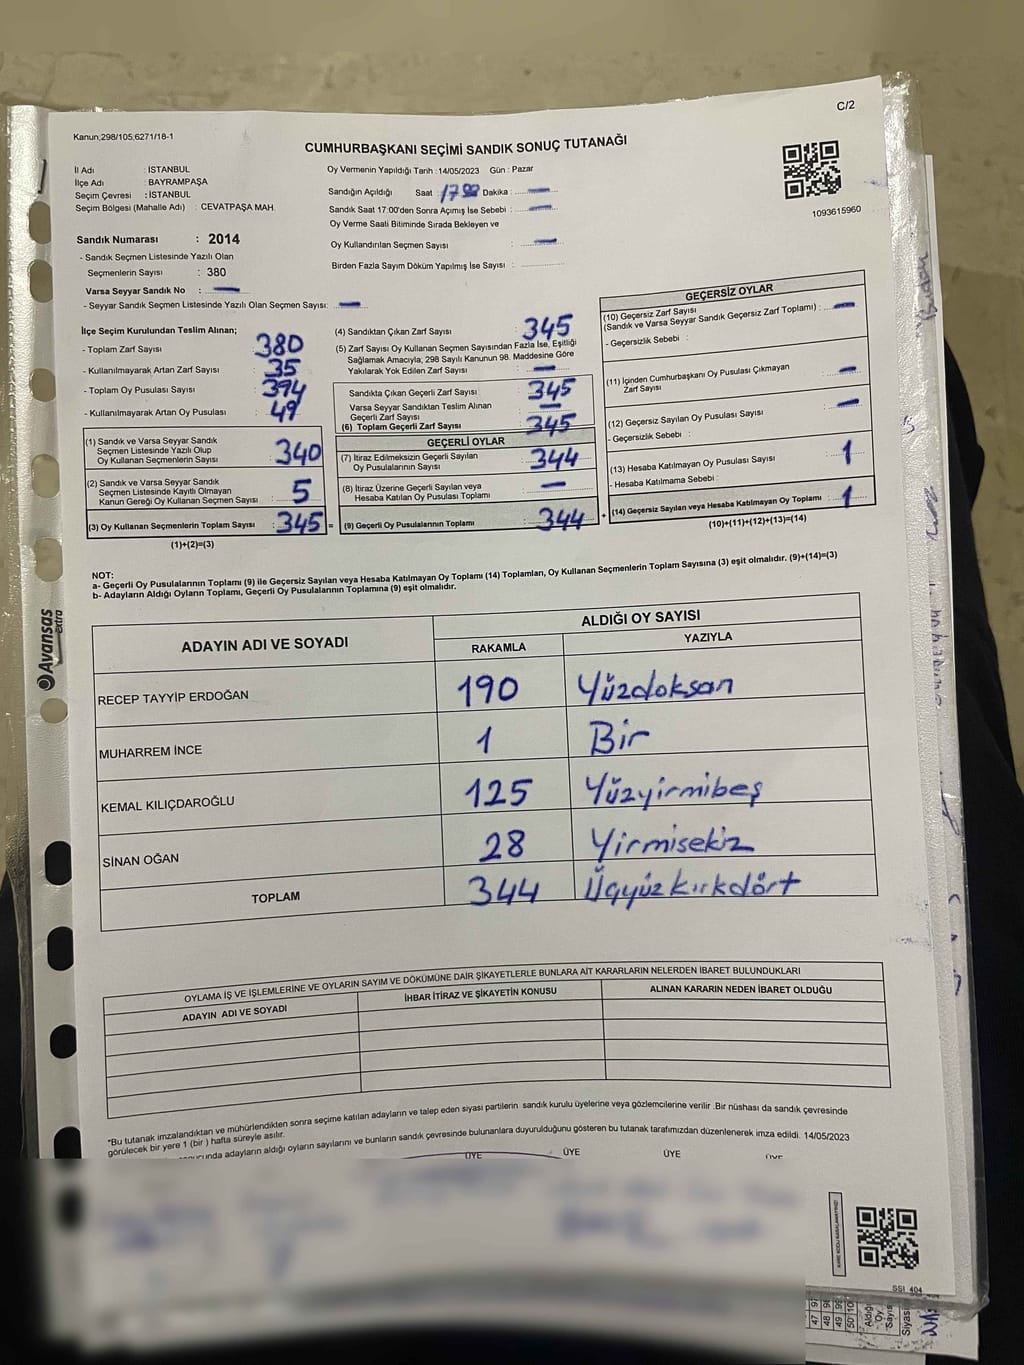 C/2
Kanun,298/105,6271/18-1
CUMHURBAŞKANI SEÇİMİ SANDIK SONUÇ TUTANAĞI
İl Adı : İSTANBUL
İlçe Adı : BAYRAMPAŞA
Seçim Çevresi : İSTANBUL
Seçim Bölgesi (Mahalle Adı) : CEVATPAŞA MAH.
Sandık Numarası : 2014
- Sandık Seçmen Listesinde Yazılı Olan
Seçmenlerin Sayısı : 380
Varsa Seyyar Sandık No : —
- Seyyar Sandık Seçmen Listesinde Yazılı Olan Seçmen Sayısı: —
Oy Vermenin Yapıldığı Tarih : 14/05/2023 Gün : Pazar
Sandığın Açıldığı Saat : 17 00 Dakika : —
Sandık Saat 17:00'den Sonra Açımış İse Sebebi : —
Oy Verme Saati Bitiminde Sırada Bekleyen ve
Oy Kullandırılan Seçmen Sayısı : —
Birden Fazla Sayım Döküm Yapılmış İse Sayısı :
1093615960
İlçe Seçim Kurulundan Teslim Alınan;
- Toplam Zarf Sayısı : 380
- Kullanılmayarak Artan Zarf Sayısı : 35
- Toplam Oy Pusulası Sayısı : 394
- Kullanılmayarak Artan Oy Pusulası : 49
(1) Sandık ve Varsa Seyyar Sandık
Seçmen Listesinde Yazılı Olup
Oy Kullanan Seçmenlerin Sayısı : 340
(2) Sandık ve Varsa Seyyar Sandık
Seçmen Listesinde Kayıtlı Olmayan
Kanun Gereği Oy Kullanan Seçmen Sayısı : 5
(3) Oy Kullanan Seçmenlerin Toplam Sayısı : 345 =
(1)+(2)=(3)
(4) Sandıktan Çıkan Zarf Sayısı : 345
(5) Zarf Sayısı Oy Kullanan Seçmen Sayısından Fazla İse, Eşitliği
Sağlamak Amacıyla, 298 Sayılı Kanunun 98. Maddesine Göre
Yakılarak Yok Edilen Zarf Sayısı : —
Sandıkta Çıkan Geçerli Zarf Sayısı : 345
Varsa Seyyar Sandıktan Teslim Alınan
Geçerli Zarf Sayısı : —
(6) Toplam Geçerli Zarf Sayısı : 345
GEÇERLİ OYLAR
(7) İtiraz Edilmeksizin Geçerli Sayılan
Oy Pusulalarının Sayısı : 344
(8) İtiraz Üzerine Geçerli Sayılan veya
Hesaba Katılan Oy Pusulası Toplamı : —
(9) Geçerli Oy Pusulalarının Toplamı : 344 +
GEÇERSİZ OYLAR
(10) Geçersiz Zarf Sayısı
(Sandık ve Varsa Seyyar Sandık Geçersiz Zarf Toplamı) : —
- Geçersizlik Sebebi :
(11) İçinden Cumhurbaşkanı Oy Pusulası Çıkmayan
Zarf Sayısı : —
(12) Geçersiz Sayılan Oy Pusulası Sayısı : —
- Geçersizlik Sebebi :
(13) Hesaba Katılmayan Oy Pusulası Sayısı : 1
- Hesaba Katılmama Sebebi :
(14) Geçersiz Sayılan veya Hesaba Katılmayan Oy Toplamı : 1
(10)+(11)+(12)+(13)=(14)
NOT:
a- Geçerli Oy Pusulalarının Toplamı (9) ile Geçersiz Sayılan veya Hesaba Katılmayan Oy Toplamı (14) Toplamları, Oy Kullanan Seçmenlerin Toplam Sayısına (3) eşit olmalıdır. (9)+(14)=(3)
b- Adayların Aldığı Oyların Toplamı, Geçerli Oy Pusulalarının Toplamına (9) eşit olmalıdır.
Avansas
extra
ADAYIN ADI VE SOYADI
ALDIĞI OY SAYISI
RAKAMLA YAZIYLA
RECEP TAYYİP ERDOĞAN 190 Yüzdoksan
MUHARREM İNCE 1 Bir
KEMAL KILIÇDAROĞLU 125 Yüzyirmibeş
SİNAN OĞAN 28 Yirmisekiz
TOPLAM 344 Üçyüzkırkdört
OYLAMA İŞ VE İŞLEMLERİNE VE OYLARIN SAYIM VE DÖKÜMÜNE DAİR ŞİKAYETLERLE BUNLARA AİT KARARLARIN NELERDEN İBARET BULUNDUKLARI
ADAYIN ADI VE SOYADI İHBAR İTİRAZ VE ŞİKAYETİN KONUSU ALINAN KARARIN NEDEN İBARET OLDUĞU
*Bu tutanak imzalandıktan ve mühürlendikten sonra seçime katılan adayların ve talep eden siyasi partilerin sandık kurulu üyelerine veya gözlemcilerine verilir .Bir nüshası da sandık çevresinde
görülecek bir yere 1 (bir ) hafta süreyle asılır.
adayların aldığı oyların sayılarını ve bunların sandık çevresinde bulunanlara duyurulduğunu gösteren bu tutanak tarafımızdan düzenlenerek imza edildi. 14/05/2023
ÜYE ÜYE ÜYE
SSI 404
47
48
49
50
Aldığı
Oy
Sayısı